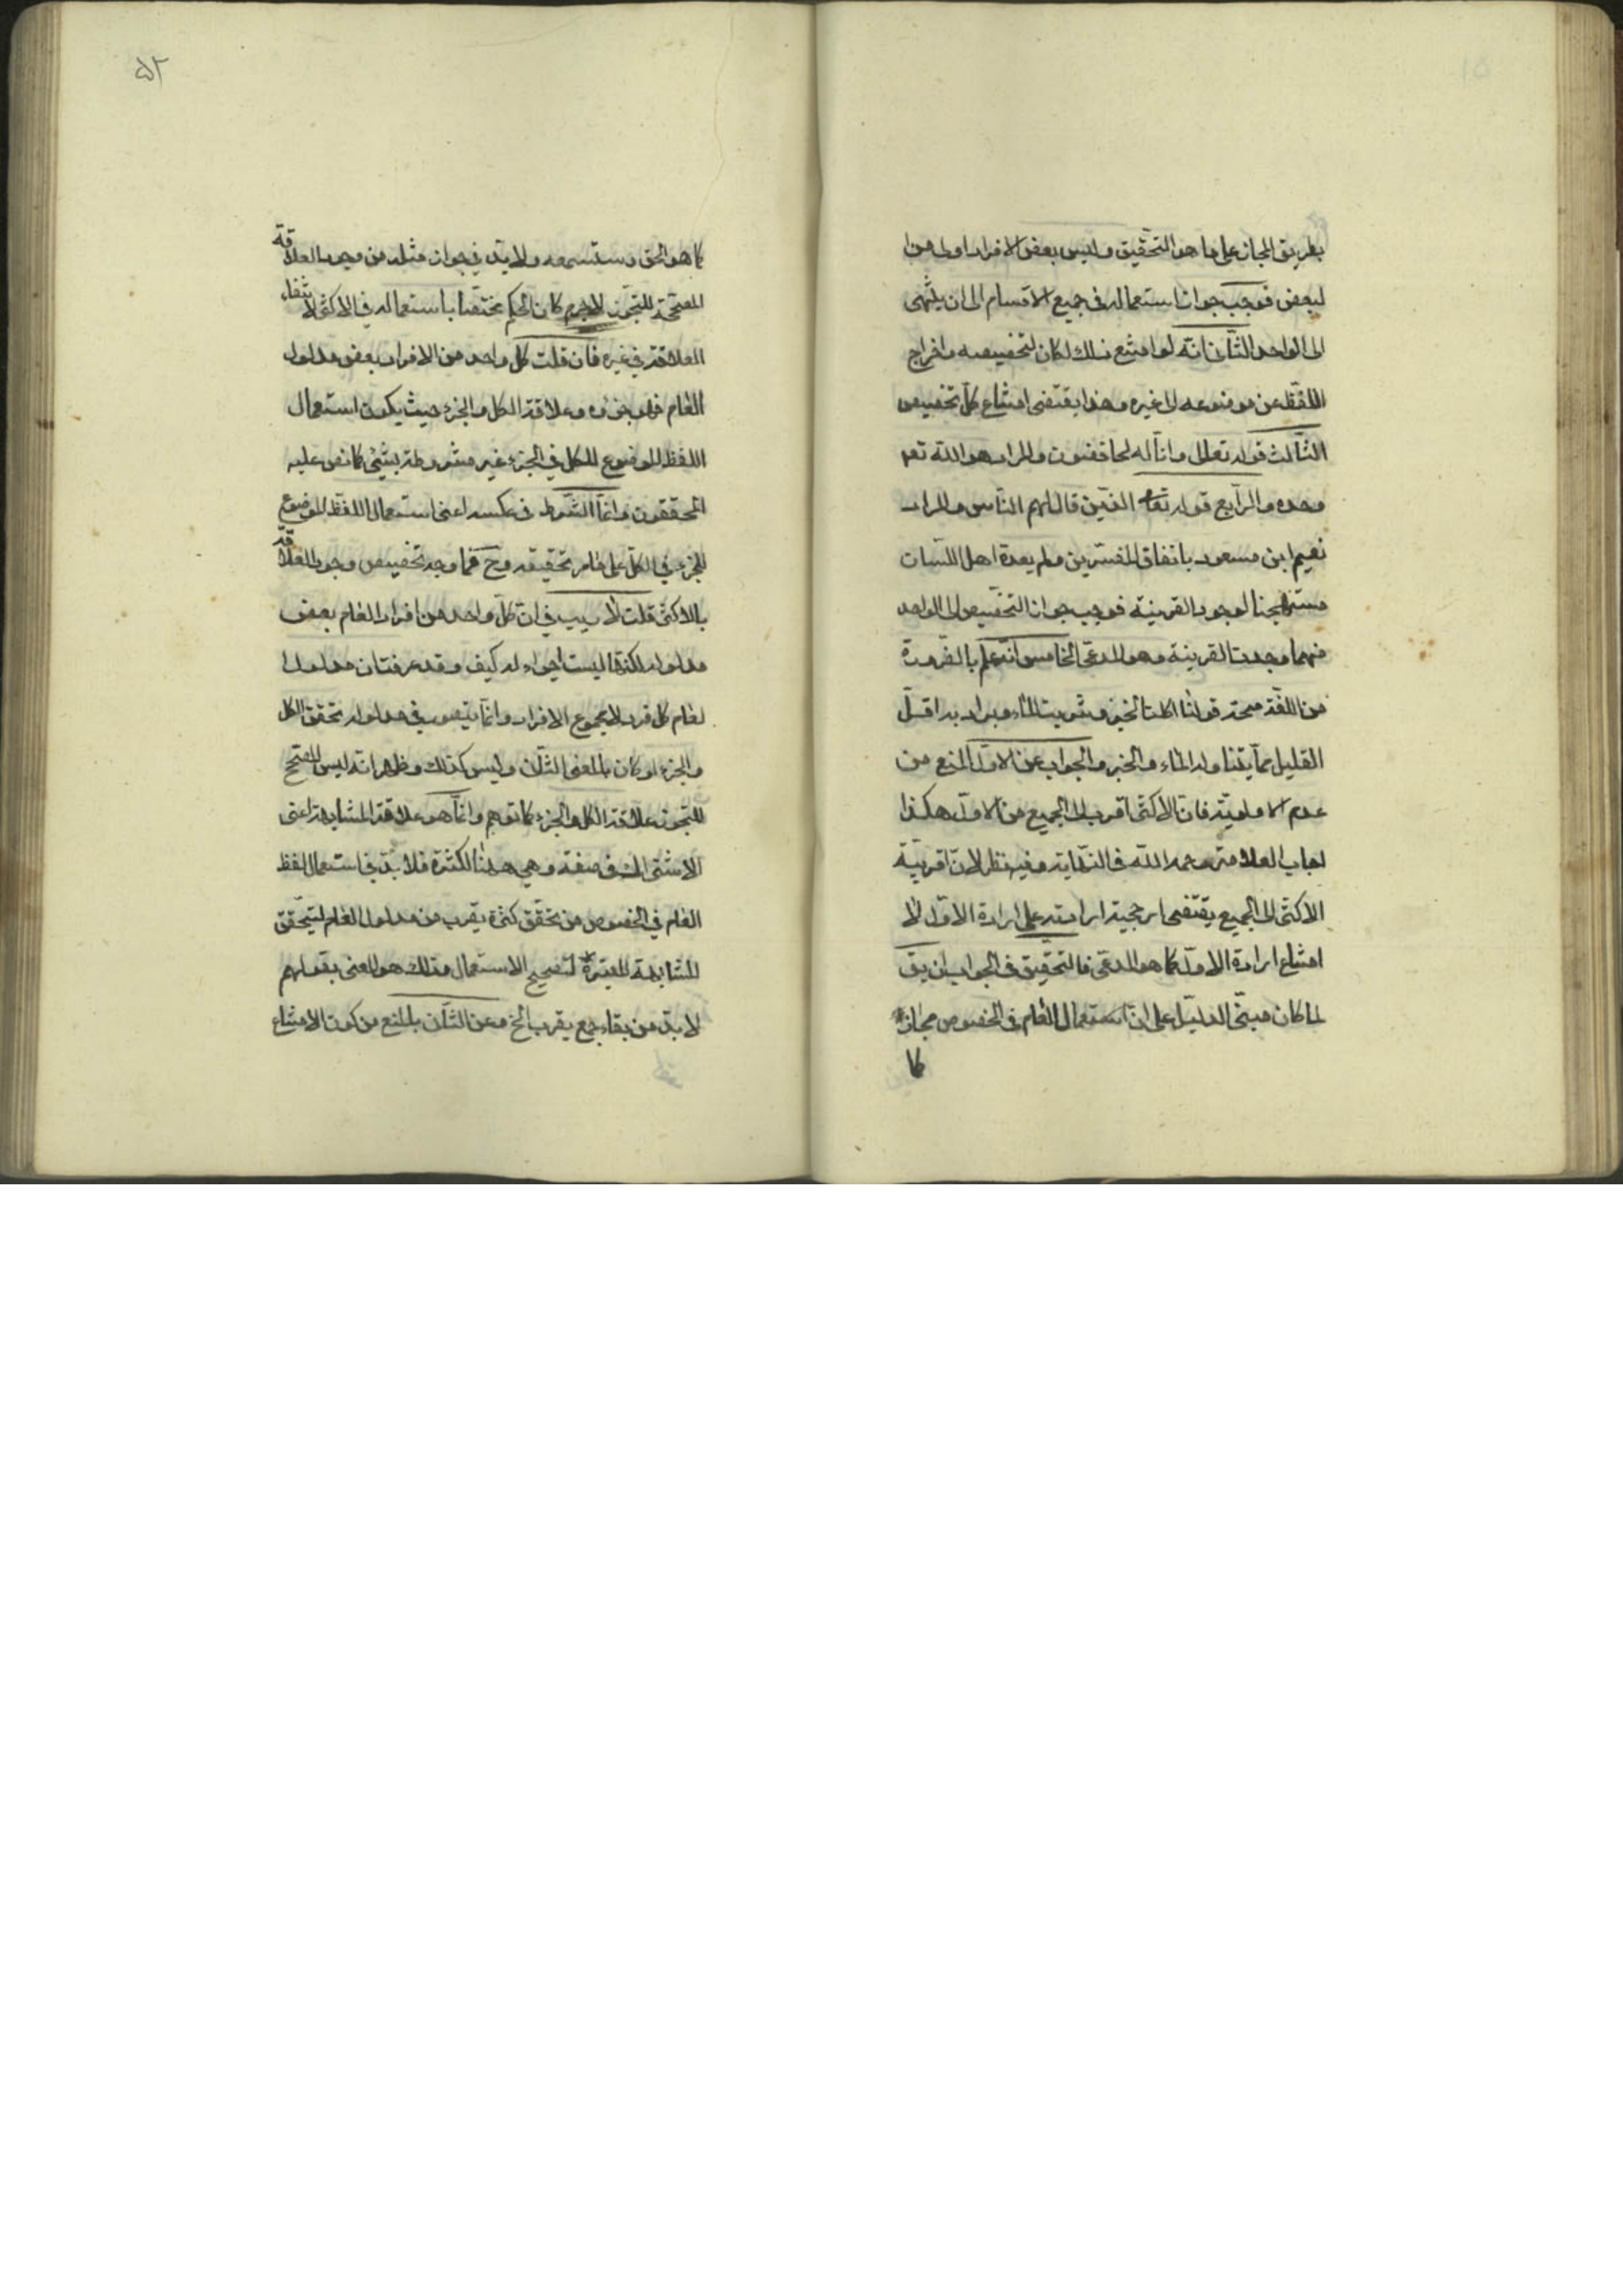 بطريق المجاز على ما هو التحقيق وليس بعض الافراد اولى من
لبعض فوجب جواز استعماله فى جميع الاقسام الى ان ينتهى
الى الواحد الثانى انه لو امتنع ذلك لكان لتخصيصه واخراج
اللفظ عن موضوعه الى غيره وهذا يقتضى امتناع كل تخصيص
الثالث قوله تعالى وانا له لحافظون والمراد هو الله تعـ
وحده والرابع قوله تعا الذين قال لهم الناس والمراد
نعيم ابن مسعود باتفاق المفسرين ولم يعده اهل اللسان
مستهجنا لوجود القرينة فوجب جواز التخصيص الى الواحد
مهما وجدت القرينة وهو المدعى الخامس انه علم بالضرورة
من اللغة صحة قولنا اكلت الخبز وشربت الماء ويراد به اقل
القليل مما يتناوله الماء والخبز والجواب عن الاول المنع من
عدم الاولوية فان الاكثر اقرب الى الجميع من الاول هكذا
اجاب العلامة رحمه الله فى النهاية وفيه نظر لان اقربية
الاكثر الى الجميع يقتضى ارجحية ارادته على ارادة الاول لا
امتناع ارادة الاول كما هو المدعى فالتحقيق فى الجواب ان يق
لما كان مبنى الدليل على ان استعمال العام فى الخصوص مجاز
كا
۵۲
كما هو الحق وستسمعه ولا بد فى جواز مثله من وجود العلاقة
المصححة للتجوز لا جرم كان الحكم مختصا باستعماله فى الاكثر لانتفاء
العلاقة فى غيره فان قلت كل واحد من الافراد بعض مدلول
العام فهو جزؤه وعلاقة الكل والجزء حيث يكون استعمال
اللفظ الموضوع للكل فى الجزء غير مشروطة بشئ كما نص عليه
المحققون وانما الشرط فى عكسه اعنى استعمال اللفظ الموضوع
للجزء فى الكل على ما مر تحقيقه وح فما وجه تخصيص وجود العلاقة
بالاكثر قلت لا ريب فى ان كل واحد من افراد العام بعض
مدلوله لكنها ليست اجزاء له كيف وقد عرفت ان مدلول
لعام كل فرد لا مجموع الافراد وانما يتصور فى مدلوله تحقق الكل
والجزء لو كان بالمعنى الثانى وليس كذلك وظهر انه ليس المصحح
للتجوز علاقة الكل والجزء كما توهم وانما هو علاقة المشابهة اعنى
الاشتراك فى صفة وهى هنا الكثرة فلا بد فى استعمال لفظ
العام فى الخصوص من تحقق كثرة يقرب من مدلول العام لتحقق
المشابهة المعتبرة لتصحيح الاستعمال وذلك هو المعنى بقولهم
لا بد من بقاء جمع يقرب الخ وعن الثانى بالمنع من كون الامتناع